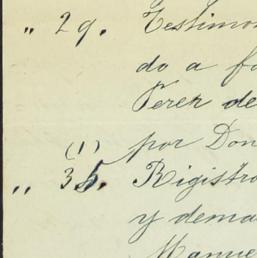 " 29. Testimo
do a fa
Perez de
(1) por Don
" 35. Rigistro
y dema
Manue